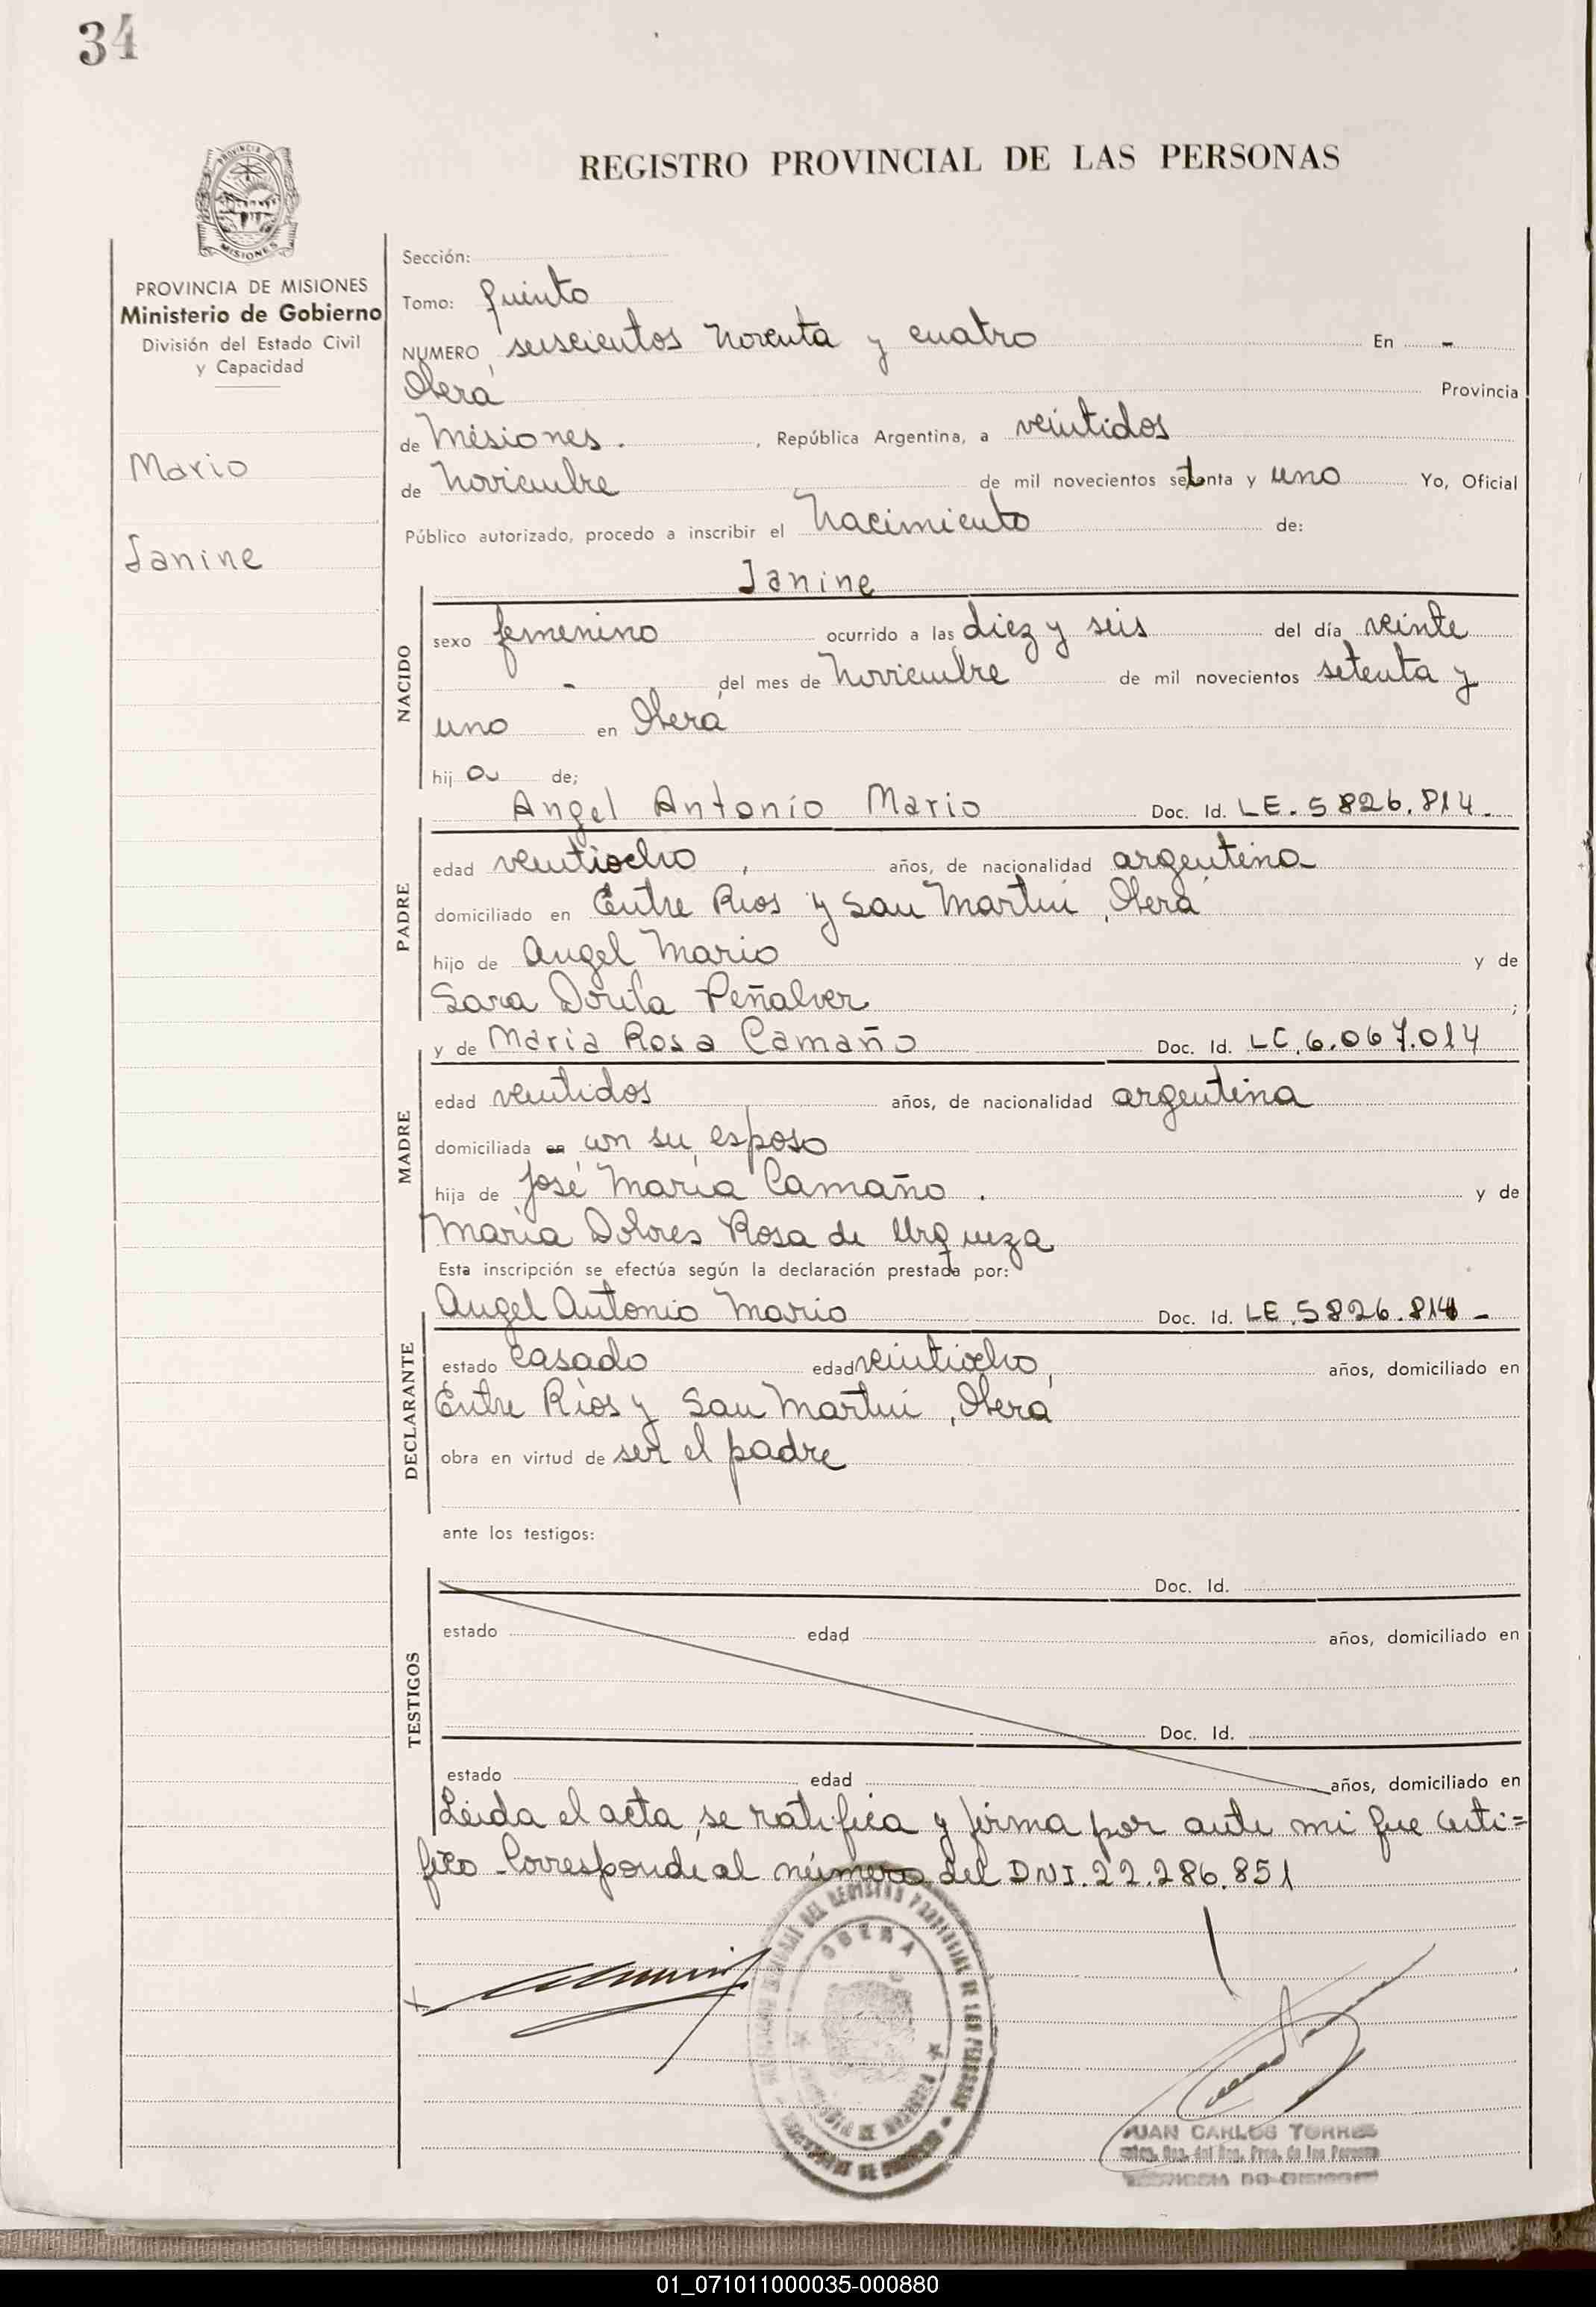 34
REGISTRO PROVINCIAL DE LAS PERSONAS
MISIONES
PROVINCIA DE MISIONES
Ministerio de Gobierno
División del Estado Civil
y Capacidad
Mario
Janine
Sección:
Tomo: Quinto
NUMERO seiscientos noventa y cuatro En -
Oberá Provincia
de Misiones. , República Argentina, a veintidos
de Noviembre de mil novecientos setenta y uno Yo, Oficial
Público autorizado, procedo a inscribir el Nacimiento de:
Janine
NACIDO
sexo femenino ocurrido a las diez y seis del día veinte
- del mes de Noviembre de mil novecientos setenta y
uno en Oberá
hij a de;
Angel Antonio Mario Doc. Id. LE. 5826.814-
PADRE
edad veintiocho, años, de nacionalidad argentina
domiciliado en Entre Rios y San Martin, Oberá
hijo de Angel Mario y de
Sara Dorila Peñalver ;
y de Maria Rosa Camaño Doc. Id. LC.6.067.014
MADRE
edad veintidos años, de nacionalidad argentina
domiciliada en con su esposo
hija de José María Camaño. y de
María Dolores Rosa de Urquiza
Esta inscripción se efectúa según la declaración prestada por:
Angel Antonio Mario Doc. Id. LE.5826.814-
DECLARANTE
estado casado edad veintiocho, años, domiciliado en
Entre Ríos y San Martin, Oberá
obra en virtud de ser el padre
ante los testigos:
TESTIGOS
Doc. Id.
estado edad años, domiciliado en
Doc. Id.
estado edad años, domiciliado en
Leida el acta, se ratifica y firma por ante mi que certi=
fico - Corresponde al número del DNI.22.286.851
OBERA
JUAN CARLOS TORRES
01_071011000035-000880